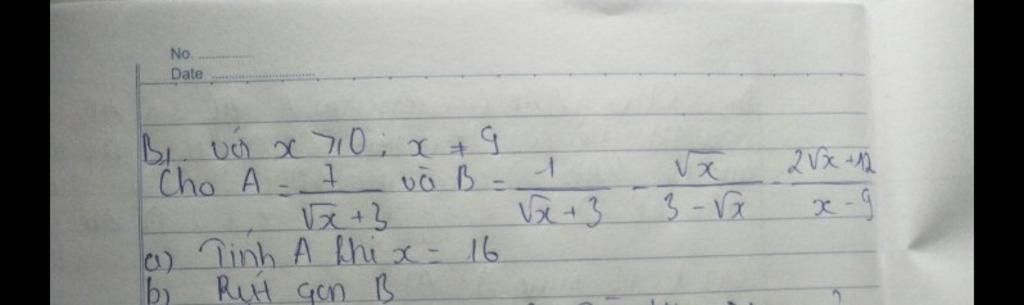 No.
Date
B1. với x ≥ 0 ; x ≠ 9
Cho A = 7/(√x + 3) và B = 1/(√x + 3) - √x/(3 - √x) - (2√x + 12)/(x - 9)
a) Tính A khi x = 16
b) Rút gọn B